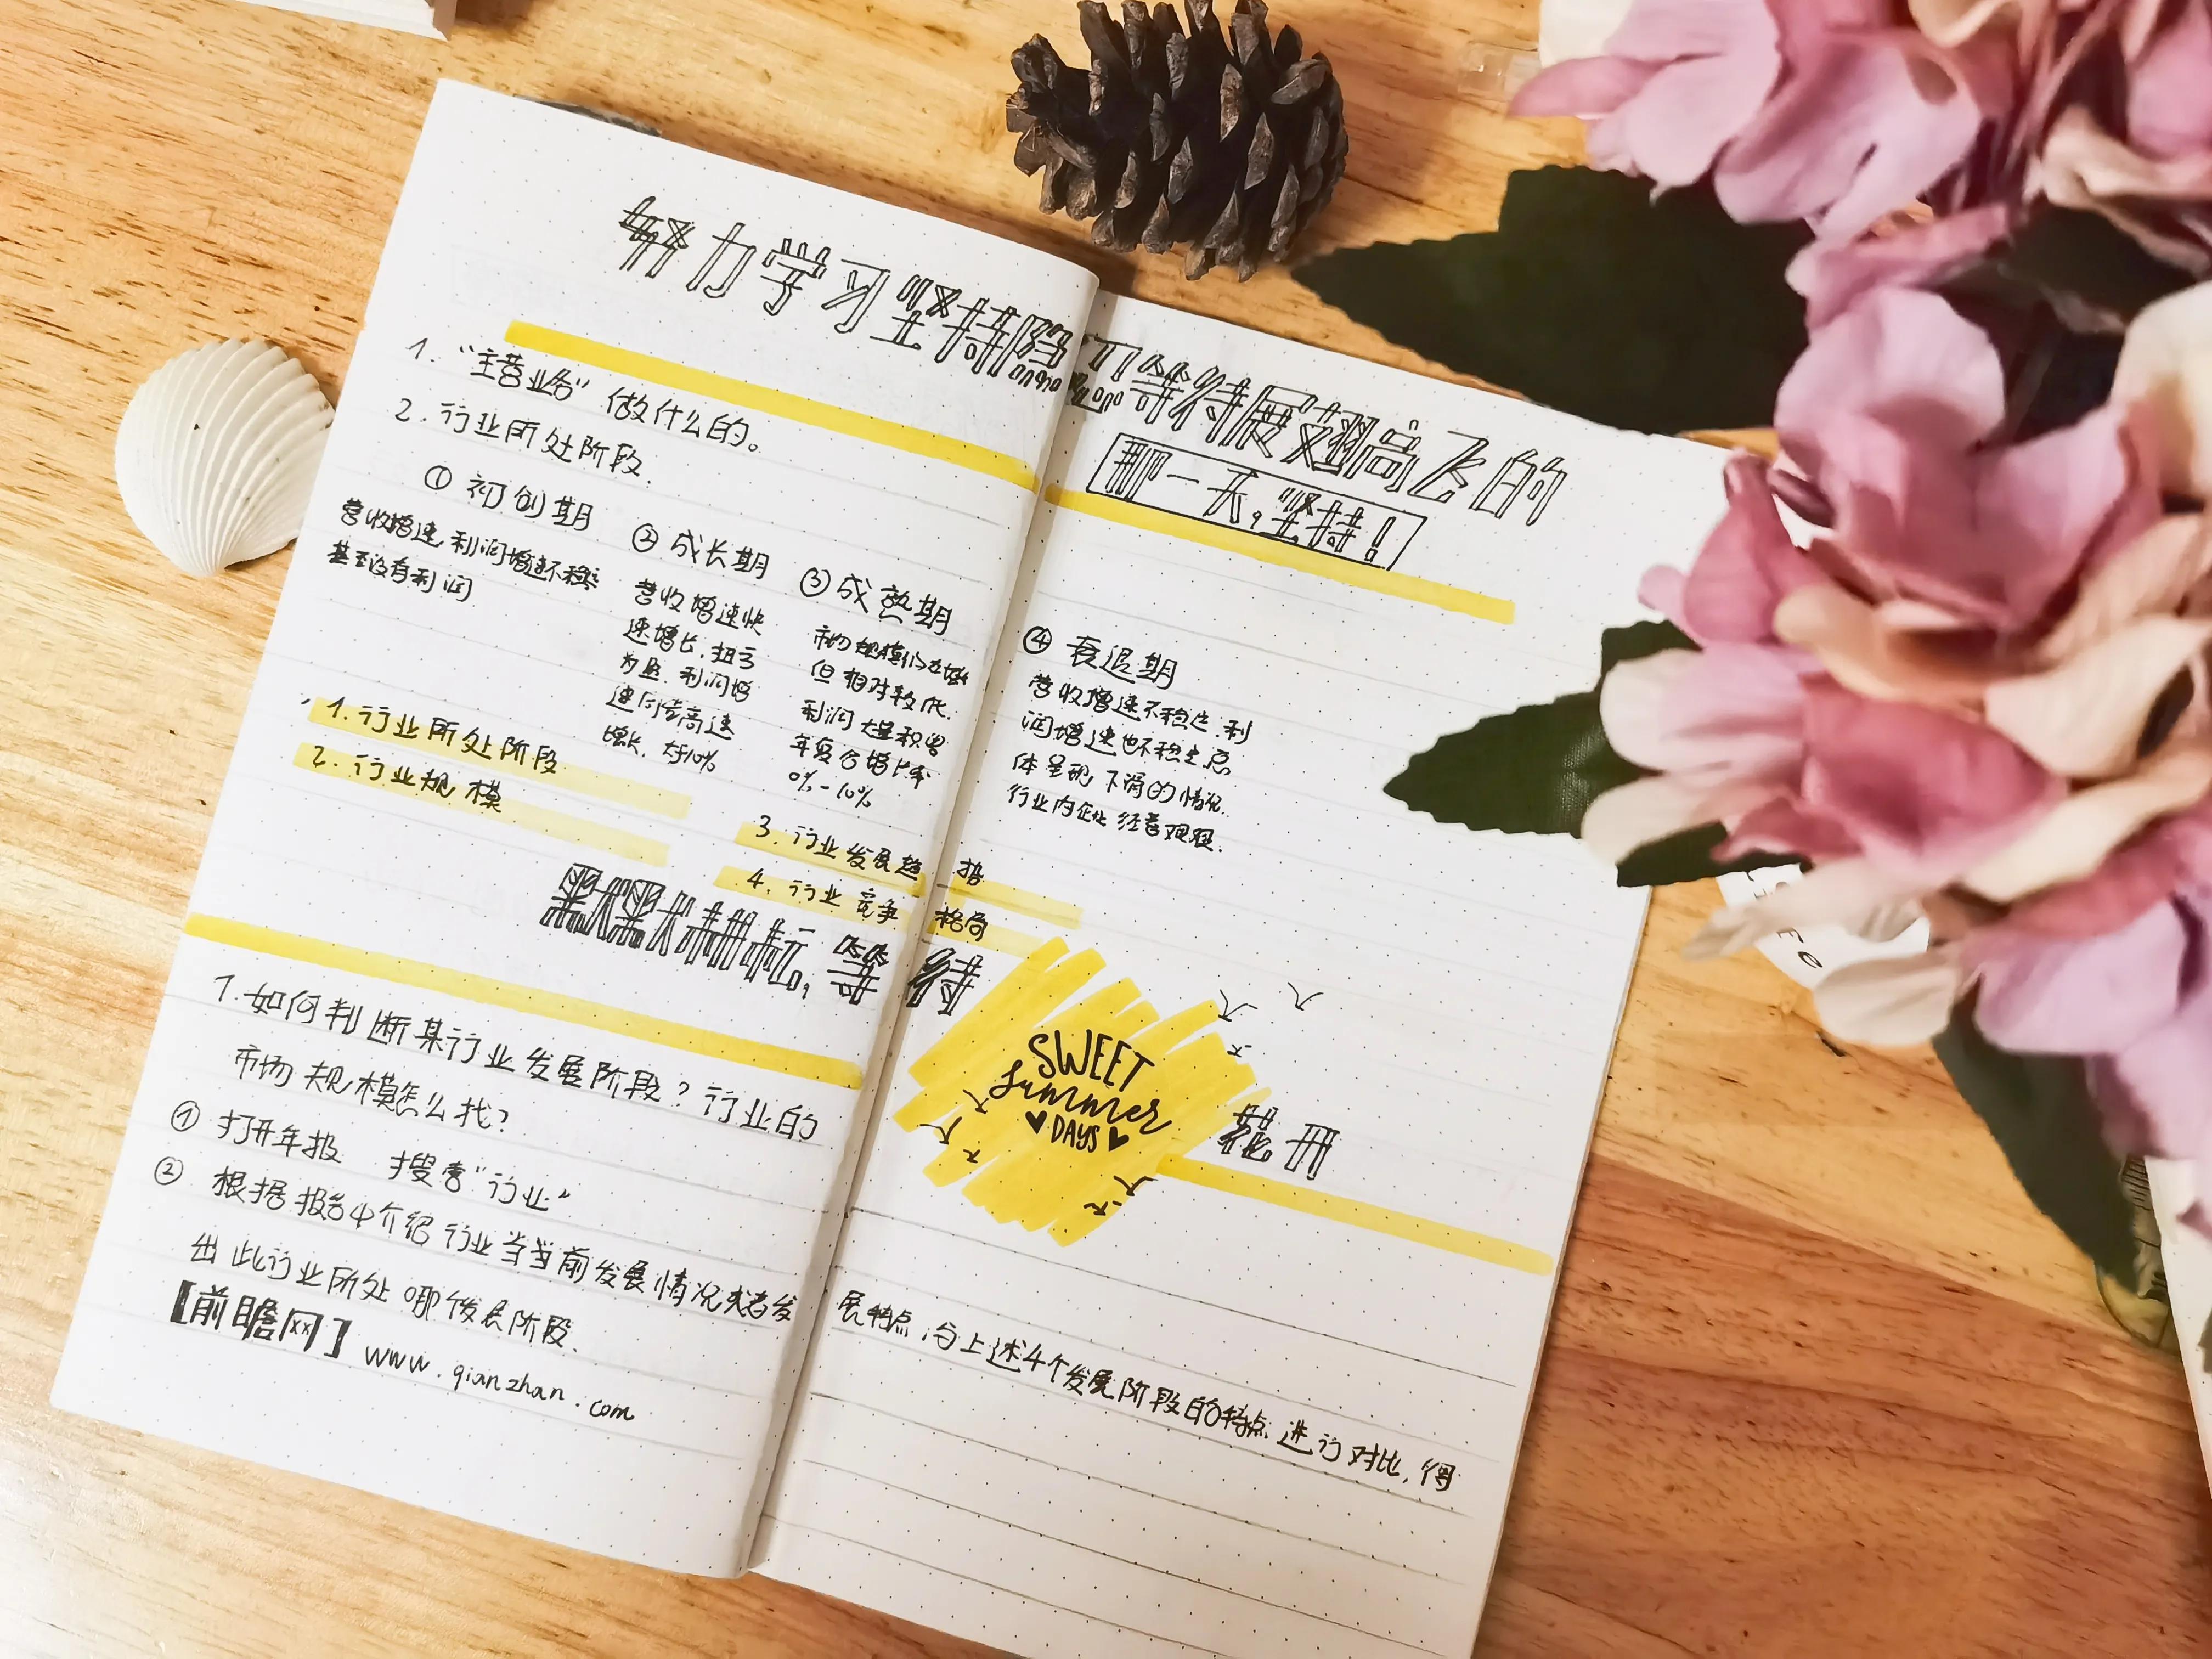 努力学习坚持隐忍等待展翅高飞的
那一天,坚持!
1. "主营业务" 做什么的。
2. 行业所处阶段.
① 初创期
营收增速,利润增速不稳定
甚至没有利润
② 成长期
营收增速快
速增长.扭亏
为盈.利润增
速同步高速
增长. 大于10%
③ 成熟期
市场规模仍在增
但相对较低.
利润大量积累
年复合增长率
0% - 10%
④ 衰退期
营收增速不稳定.利
润增速也不稳定总
体呈现下滑的情况.
行业内企业经营艰难.
1. 行业所处阶段
2. 行业规模
3. 行业发展趋势
4. 行业竞争格局
默默耕耘,等待
花开
SWEET
Summer
DAYS
1. 如何判断某行业发展阶段?行业的
市场规模怎么找?
① 打开年报 搜索"行业"
② 根据报告中介绍行业当当前发展情况或者发展特点,与上述4个发展阶段的特点进行对比,得
出此行业所处哪个发展阶段.
【前瞻网】 www.qianzhan.com